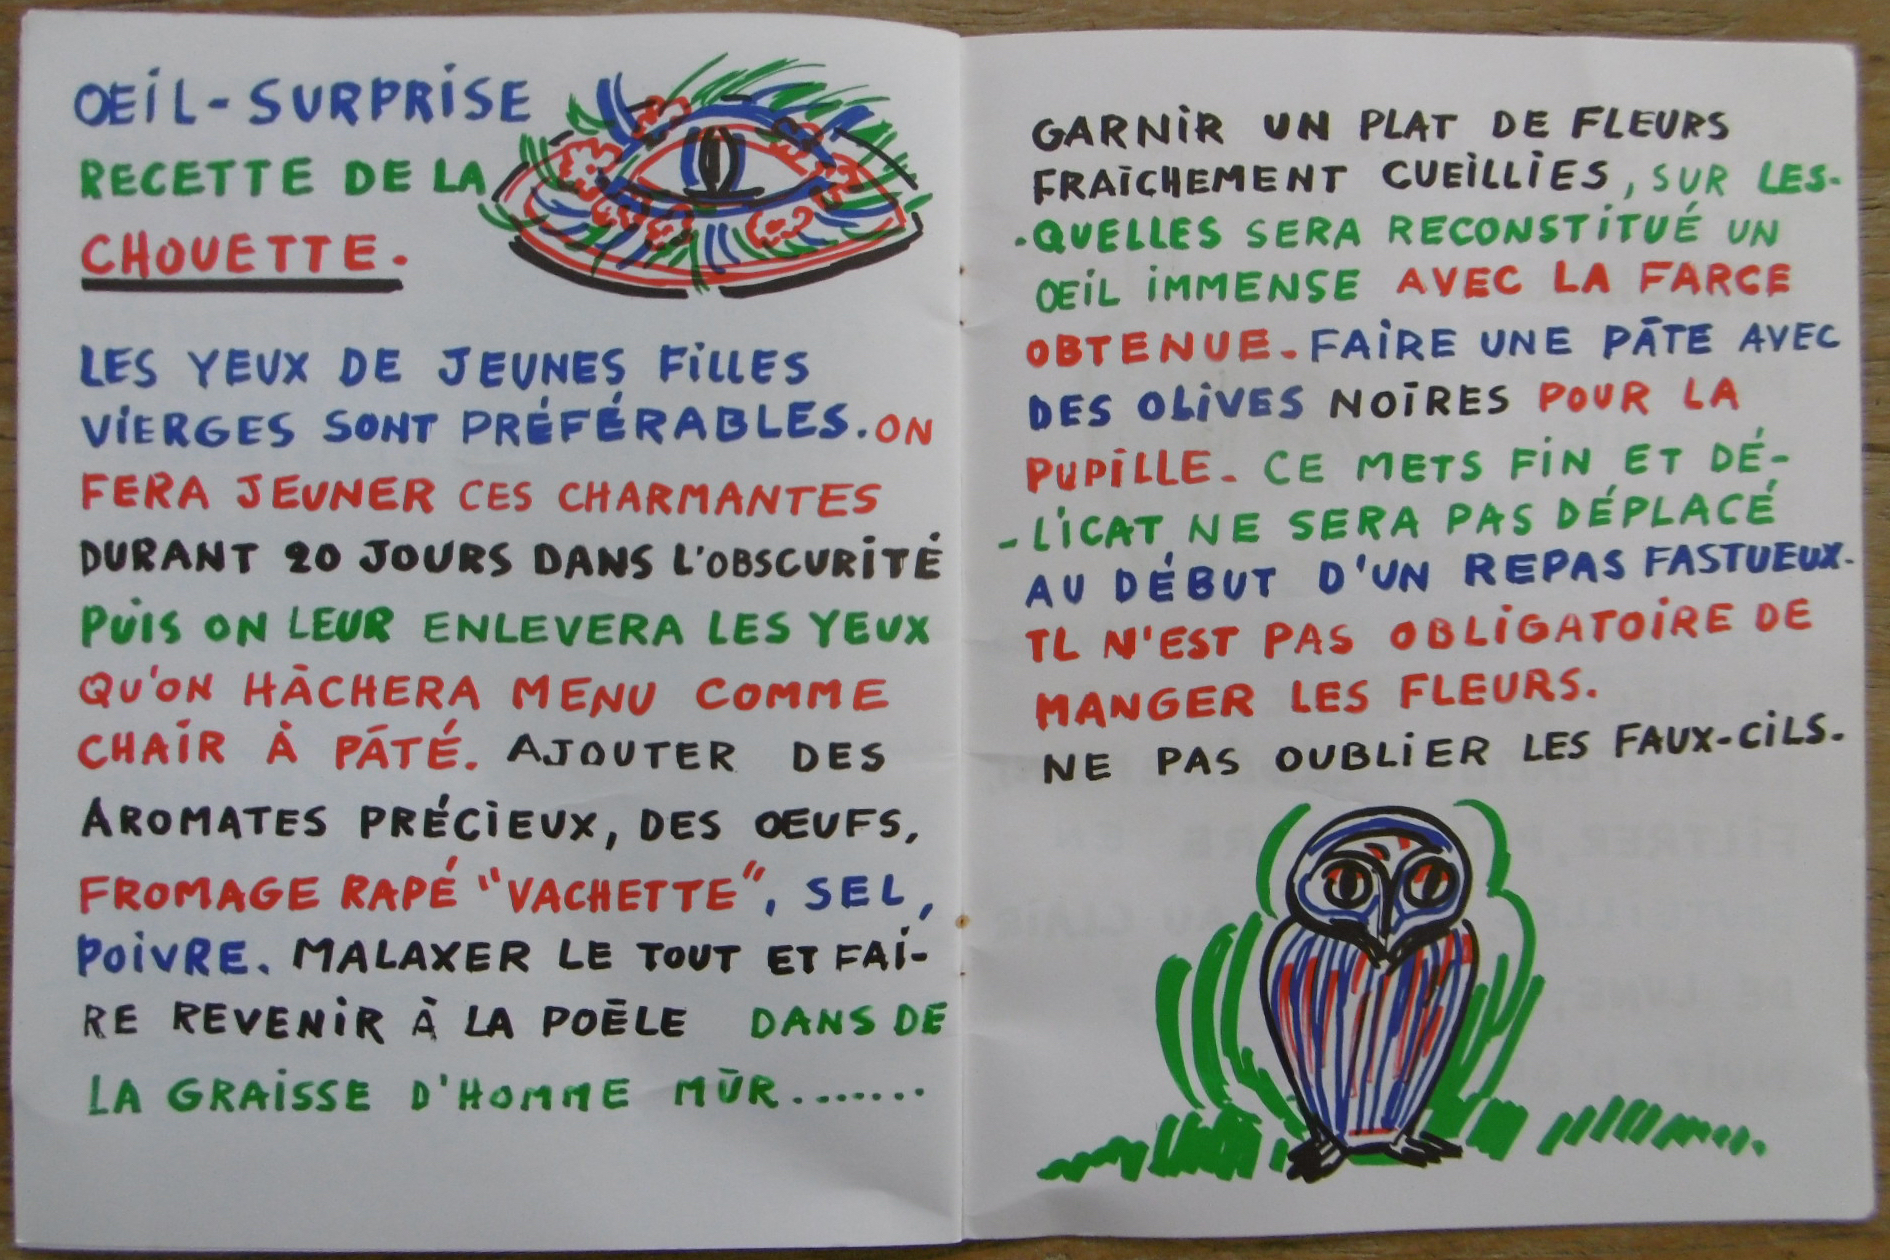 OEIL-SURPRISE
RECETTE DE LA
CHOUETTE.
LES YEUX DE JEUNES FILLES
VIERGES SONT PRÉFÉRABLES. ON
FERA JEUNER CES CHARMANTES
DURANT 20 JOURS DANS L'OBSCURITÉ
PUIS ON LEUR ENLEVERA LES YEUX
QU'ON HÂCHERA MENU COMME
CHAIR À PÂTÉ. AJOUTER DES
AROMATES PRÉCIEUX, DES OEUFS,
FROMAGE RAPÉ "VACHETTE", SEL,
POIVRE. MALAXER LE TOUT ET FAI-
RE REVENIR À LA POÊLE DANS DE
LA GRAISSE D'HOMME MÛR.......
GARNIR UN PLAT DE FLEURS
FRAÎCHEMENT CUEILLIES, SUR LES-
-QUELLES SERA RECONSTITUÉ UN
OEIL IMMENSE AVEC LA FARCE
OBTENUE. FAIRE UNE PÂTE AVEC
DES OLIVES NOIRES POUR LA
PUPILLE. CE METS FIN ET DÉ-
-LICAT NE SERA PAS DÉPLACÉ
AU DÉBUT D'UN REPAS FASTUEUX.
IL N'EST PAS OBLIGATOIRE DE
MANGER LES FLEURS.
NE PAS OUBLIER LES FAUX-CILS.